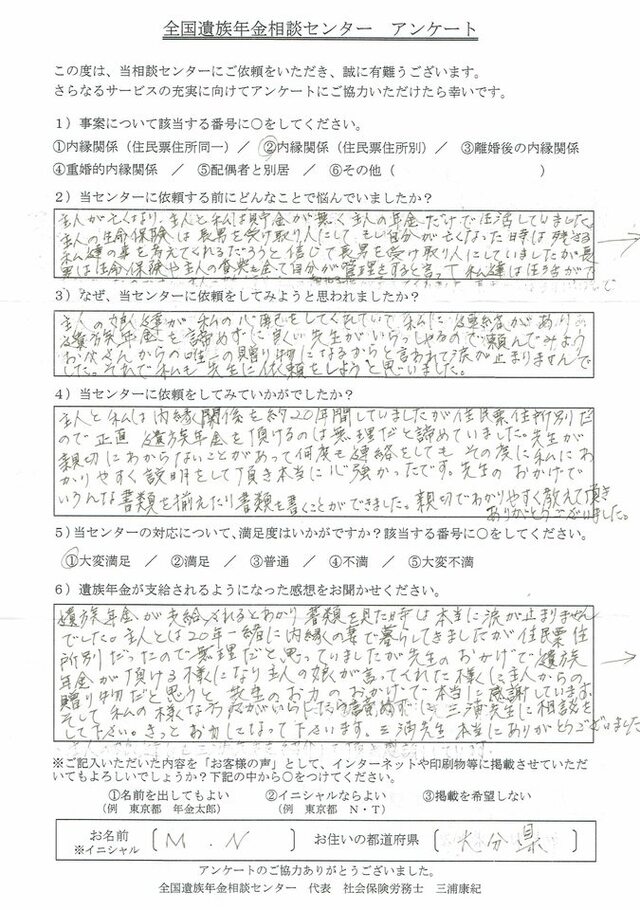 全国遺族年金相談センター アンケート
この度は、当相談センターにご依頼をいただき、誠に有難うございます。
さらなるサービスの充実に向けてアンケートにご協力いただけたら幸いです。
1）事案について該当する番号に○をしてください。
①内縁関係（住民票住所同一）／ ②内縁関係（住民票住所別）／ ③離婚後の内縁関係
④重婚的内縁関係 ／ ⑤配偶者と別居 ／ ⑥その他（ ）
2）当センターに依頼する前にどんなことで悩んでいましたか？
主人が亡くなり、主人と私は貯金が無く主人の年金だけで生活していました。
主人の生命保険は長男を受け取り人にして、もし自分が亡くなった時は残される
私達の事を考えてくれるだろうと信じて長男を受け取り人にしていましたが長
男は生命保険や主人の貯金も全て自分が管理をすると言って私達は生活がで
3）なぜ、当センターに依頼をしてみようと思われましたか？
主人の娘達が私の心配をしてくれていて私に連絡があり
遺族年金を諦めずに良い先生がいらっしゃるので頼んでみよう
お父さんからの唯一の贈り物になるからと言われて涙が止まりませんで
した。それで私も先生に依頼をしようと思いました。
4）当センターに依頼をしてみていかがでしたか？
主人と私は内縁関係を約20年間していましたが住民票住所別だ
ので正直遺族年金を頂けるのは無理だと諦めていました。先生が
親切にわからないことがあって何度も連絡をしてもその度に私にわ
かりやすく説明をして頂き本当に心強かったです。先生のおかげで
いろんな書類を揃えたり書類を書くことができました。親切でわかりやすく教えて頂き
ありがとうございました。
5）当センターの対応について、満足度はいかがですか？該当する番号に○をしてください。
①大変満足 ／ ②満足 ／ ③普通 ／ ④不満 ／ ⑤大変不満
6）遺族年金が支給されるようになった感想をお聞かせください。
遺族年金が支給されるとわかり書類を見た時は本当に涙が止まりません
でした。主人とは20年一緒に内縁の妻で暮らしてきましたが住民票住
所別だったので無理だと思っていましたが先生のおかげで遺族
年金が頂ける様になり主人の娘が言ってくれた様に主人からの
贈り物だと思うと先生のお力のおかげで本当に感謝しています。
そして私の様な方がいらしたら諦めずに三浦先生に相談を
して下さい。きっとお力になって下います。三浦先生本当にありがとうございました
※ご記入いただいた内容を「お客様の声」として、インターネットや印刷物等に掲載させていただ
いてもよろしいでしょうか？下記の中から○をつけてください。
①名前を出してもよい ②イニシャルならよい ③掲載を希望しない
（例 東京都 年金太郎） （例 東京都 N・T）
お名前 ※イニシャル 〔 M.N 〕 お住いの都道府県 〔 大分県 〕
アンケートのご協力ありがとうございました。
全国遺族年金相談センター 代表 社会保険労務士 三浦康紀